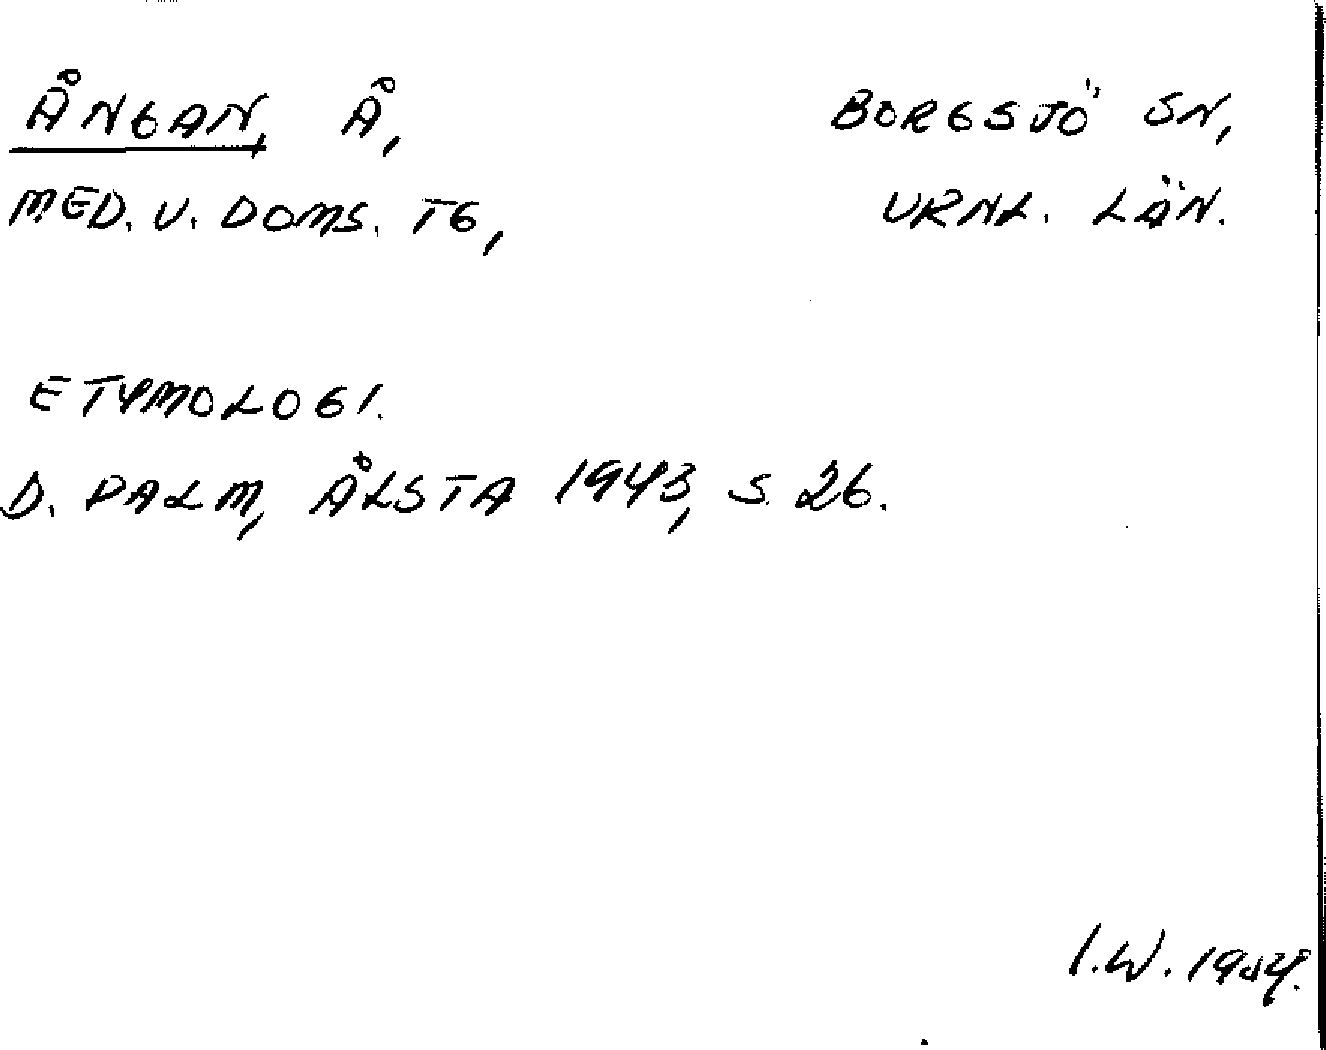 ÅNGAN, Å, BORGSJÖ SN,
MED. V. DOMS. TG, VRNL. LÄN.
ETYMOLOGI.
D. PALM, ÅLSTA 1943, S. 26.
I.W. 1954.